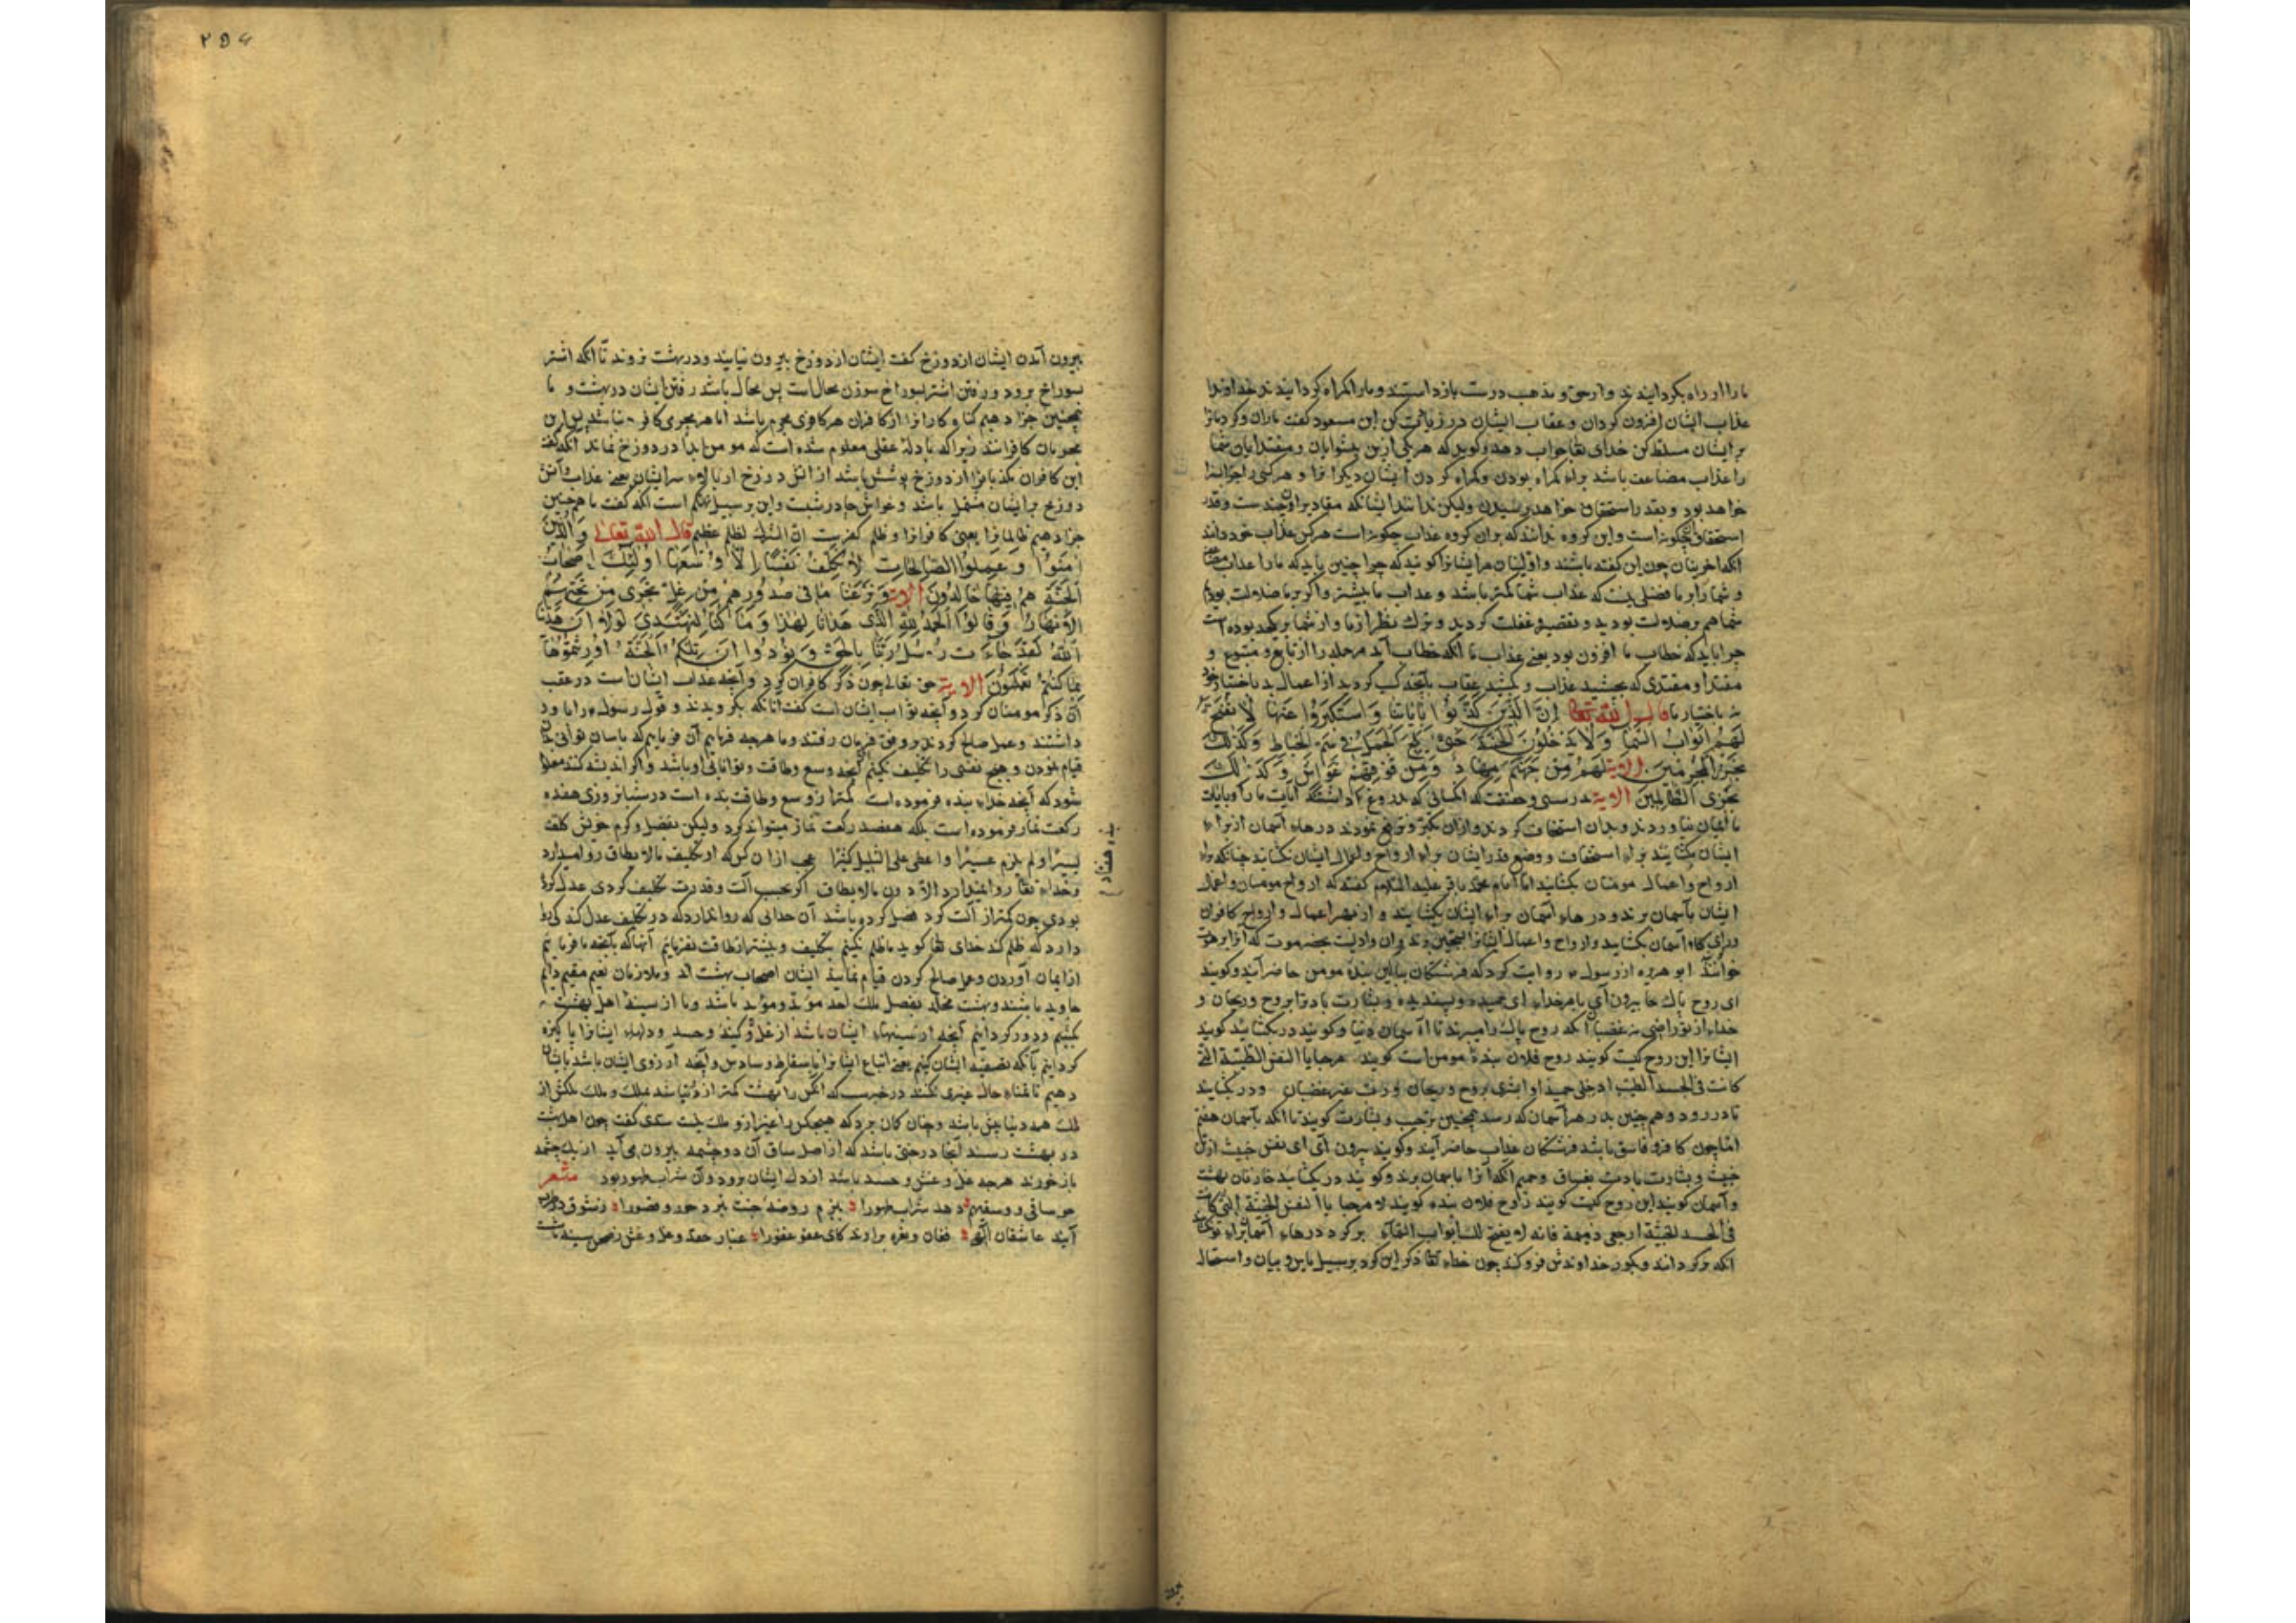 ما را از راه بگردانیدند و از حق و مذهب درست بازداشتند و ما را گمراه گردانیدند خداوندا
عذاب ایشان افزون گردان و عقاب ایشان در زیادت کن ابن مسعود گفت ماران و کژدمانرا
بر ایشان مسلط کن خدای تعا جواب دهد و گوید که هر یکی ازین پیشوایان و مقتدایان شما
را عذاب مضاعف باشد برای گمراه بودن و گمراه کردن ایشان دیگرانرا و هر کسی را جزا سزا
خواهد بود و بقدر استحقاق خواهد رسیدن ولیکن ندانند ایشان که مقادیر آن چندست و قدر
استحقاق چگونه است و این گروه ندانند که بران گروه عذاب چگونه است هر کس عذاب خود داند
آنگه اخرینان چون این گفته باشند و اولینان مر ایشانرا گویند که چرا چنین باید که ما را عذاب
و شما را بر ما فضلی نیست که عذاب شما کمتر باشد و عذاب ما بیشتر و اگر بر ما ضلالت بود
شما هم بر ضلالت بودید و تقصیر و غفلت کردید و ترک نظر از ما و از شما بر یک حد بوده است
چرا باید که خطاب ما افزون بود یعنی عذاب تا آنگه خطاب آید مر جمله را از تابع و متبوع و
مقتدا و مقتدی که بچشید عذاب و بکشید عقاب بآنچه کسب کردید از اعمال بد باختیار خود
نه باختیار ما قال الله تعالی إِنَّ الَّذِینَ کَذَّبُوا بِآیَاتِنَا وَ اسْتَکْبَرُوا عَنْهَا لَا تُفَتَّحُ
لَهُمْ أَبْوَابُ السَّمَاءِ وَلَا یَدْخُلُونَ الْجَنَّةَ حَتَّى یَلِجَ الْجَمَلُ فِی سَمِّ الْخِیَاطِ وَکَذَلِکَ
نَجْزِی الْمُجْرِمِینَ الایة لَهُمْ مِنْ جَهَنَّمَ مِهَادٌ وَمِنْ فَوْقِهِمْ غَوَاشٍ وَکَذَلِکَ
نَجْزِی الظَّالِمِینَ الایة بدرستی و حقیقت که آنکسانی که بدروغ داشتند آیات ما را و بآیات
ما ایمان نیاوردند و بدان استخفاف کردند و ازان تکبر و ترفع نمودند درهاء آسمان از براء
ایشان نگشایند براء استخفاف و وضع قدر ایشان براء ارواح و اعمال ایشان نگشایند چنانکه براء
ارواح و اعمال مومنان بگشایند اما امام محمد باقر علیه السلام گفت که ارواح مومنان و اعمال
ایشان بآسمان برند و درهاء آسمان براء ایشان بگشایند و از بهر اعمال و ارواح کافران
درهای آسمان نگشایند و ارواح و اعمال ایشانرا بسجین برند و آن وادیست بحضرموت که آنرا برهوت
خوانند ابو هریره از رسول روایت کرد که فرشتگان ببالین بندهٔ مومن حاضر آیند و گویند
ای روح پاک بیرون آی بامر خداء ای حمیده و پسندیده و بشارت باد ترا بروح و ریحان و
خداء از تو راضی نه غضبان آنگه روح پاک را میبرند تا آسمان دنیا و گویند در بگشایند گویند
ایشانرا این روح کیست گویند روح فلان بندهٔ مومن است گویند مرحبا یا النفس الطیبة التی
کانت فی الجسد الطیب ادخلی حمیدا و ابشری بروح و ریحان و رب غیر غضبان و در بگشایند
تا در رود و هم چنین بدر هر آسمان که رسد همچنین ترحیب و بشارت گویند تا آنگه بآسمان هفتم
اما چون کافر و فاسق باشد فرشتگان عذاب حاضر آیند و گویند بیرون آی ای نفس خبیث از تن
خبیث و بشارت بادت بغساق و حمیم آنگه آنرا بآسمان برند و گویند در بگشایید خازنان بهشت
و آسمان گویند این روح کیست گویند روح فلان بنده گویند لا مرحبا یا النفس الخبیثة التی کانت
فی الجسد الخبیثة ارجعی ذمیمة فانه لا یفتح لک ابواب السماء برگرد درهاء آسمان براء تو نگشایند
آنگه برگردانند و بگور خداوندش فرو کنند چون خداء تعا ذکر این کرد بر سبیل یاس و بیان و استحاله
بیرون
۲۵۶
بیرون آمدن ایشان از دوزخ گفت ایشان از دوزخ بیرون نیایند و در بهشت نروند تا آنگه اشتر
بسوراخ برود و رفتن اشتر بسوراخ سوزن محال است پس محال باشد رفتن ایشان در بهشت و ما
همچنین جزا دهیم گناه کارانرا از کافران هر کافری مجرم باشد اما هر مجری کافر نباشد پس این
مجرمان کافرانند زیرا که بادلهٔ عقلی معلوم شده است که مومن ابدا در دوزخ نماند آنگه گفت
این کافران مکذبانرا از دوزخ پوشش باشد از آتش دوزخ از بالاء سر ایشان یعنی عذاب و آتش
دوزخ بر ایشان مشتمل باشد و غواش جادر شب و این بر سبیل تهکم است آنگه گفت ما همچنین
جزا دهیم ظالمانرا یعنی کافرانرا و ظلم کفر است ان الشرک لظلم عظیم قال الله تعالی وَ الَّذِینَ
آمَنُوا وَ عَمِلُوا الصَّالِحَاتِ لَا نُکَلِّفُ نَفْسًا إِلَّا وُسْعَهَا أُولَئِکَ أَصْحَابُ
الْجَنَّةِ هُمْ فِیهَا خَالِدُونَ الایة وَنَزَعْنَا مَا فِی صُدُورِهِمْ مِنْ غِلٍّ تَجْرِی مِنْ تَحْتِهِمُ
الْأَنْهَارُ وَقَالُوا الْحَمْدُ لِلَّهِ الَّذِی هَدَانَا لِهَذَا وَ مَا کُنَّا لِنَهْتَدِیَ لَوْلَا أَنْ هَدَانَا
اللَّهُ لَقَدْ جَاءَتْ رُسُلُ رَبِّنَا بِالْحَقِّ وَ نُودُوا أَنْ تِلْکُمُ الْجَنَّةُ أُورِثْتُمُوهَا
بِمَا کُنْتُمْ تَعْمَلُونَ الایة حق تعالی چون ذکر کافران کرد و آنچه عذاب ایشان است در عقب
آن ذکر مومنان کرد و آنچه ثواب ایشان است گفت آنانکه بگرویدند و قول رسول مرا باور
داشتند و عمل صالح کردند و بر وفق فرمان رفتند و ما هرچه فرمائیم آن فرماییم که بآسان توانی
قیام نمودن و هیچ نفسی را تکلیف نکنیم آنچه وسع و طاقت و توانائی او باشد و اگر اندیشه کنند معلوم
شود که آنچه خداء بنده فرموده است کمتر از وسع و طاقت بنده است در شبانروزی هفده
رکعت نماز فرموده است بلکه هفصد رکعت نماز میتواند کرد ولیکن بفضل و کرم خویش کلف
یسیرا و لم یلزم عسیرا و اعطی علی القلیل کثیرا عجب ازان کس که او تکلیف مالا یطاق روا میدارد
و خداء تعا روا نمیدارد الا دون مالا یطاق اگر بحسب آلت و قدرت تکلیف کردی عدل کرده
بودی چون کمتر از آلت کرد فضل کرده باشد آن خدائی که روا ندارد که در تکلیف عدل کند کی روا
دارد که ظلم کند خدای تعا گوید ما ظلم نکنیم بتکلیف و بیشتر از طاقت نفرمائیم آنها که بآنچه ما فرمائیم
از ایمان آوردن و عمل صالح کردن قیام نمایند ایشان اصحاب بهشت اند و ملازمان نعیم مقیم دایم
جاوید باشند و بهشت مخلد بفضل ملک احد موبد و موید باشد و ما از سینهٔ اهل بهشت
بکشیم و دور گردانیم آنچه از سینهاء ایشان باشد از غل و کینه و حسد و دلهاء ایشانرا پاکیزه
گردانیم بآنکه تصفیهٔ ایشان کنیم یعنی اتباع ایشانرا باسقاط وساوس و آنچه آرزوی ایشان باشد بایشان
دهیم تا تمناء حال غیری نکنند در خبرست که آنکس را بهشت کمتر از دنیا
ملک همه دنیا بیش باشد و چنان گمان برد که هیچکس را غیر ازو ملک نیست سدی گفت چون اهل بهشت
در بهشت رسند آنجا درختی باشد که از اصل ساق آن دو چشمه بیرون می آید از یک چشمه
باز خورند هرچه غل و غش و حسد باشد از دل ایشان برود و آن شراب طهور بود شعر
چو ساقی و سقیهم دهد شراب طهورا ببزم روضهٔ جنت بنزد حور و قصورا ز شوق در
آیند عاشقان الهی فغان و نعره برارند کای عفو غفورا غبار حقد و غل و غش ز صحن سینه
بلغ هفتاد